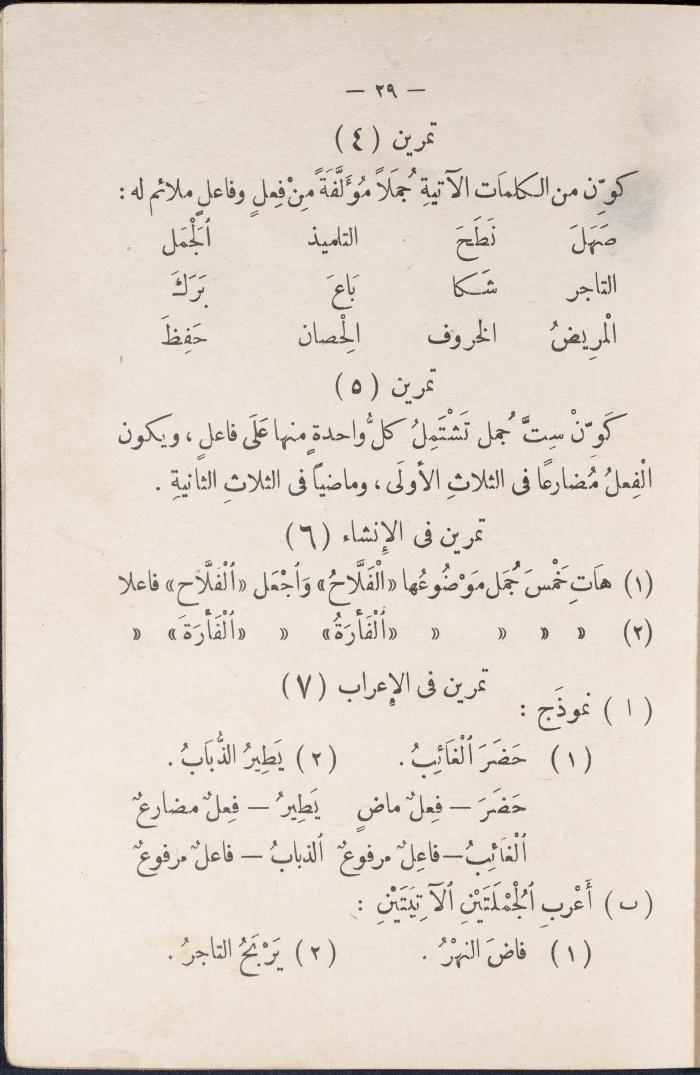 — ٢٩ —
تمرين (٤)
كوِّن من الكلمَات الآتيةِ جُمَلاً مُؤَلَّفَةً مِنْ فِعلٍ وفاعلٍ ملائم له :
صَهَلَ نَطَحَ التلميذ ٱلْجَمل
التاجر شَكا بَاعَ بَرَكَ
الْمرِيضُ الخروف الْحِصان حَفِظَ
تمرين (٥)
كَوِّنْ سِتَّ جُمل تَشْتَمِلُ كلُّ واحدةٍ منها عَلَى فاعلٍ ، ويكون
الْفِعلُ مُضارعًا فى الثلاثِ الأولَى ، وماضياً فى الثلاثِ الثانيةِ .
تمرين فى الإِنشاء (٦)
(١) هَاتِ خَمْسَ جُمَل مَوْضُوعُها «الْفَلَّاحُ» وَٱجْعَل «ٱلْفَلَّاح» فاعلا
(٢) » » » » «ٱلْفَأرَةُ» » «ٱلْفَأرَةَ» »
تمرين فى الإِعراب (٧)
(ا) نموذَج :
(١) حَضَرَ ٱلْغَائِبُ . (٢) يَطِيرُ الذُّبَابُ .
حَضَرَ — فِعلٌ ماضٍ يَطِيرُ — فِعلٌ مضارعٌ
ٱلْغَائِبُ — فاعِلٌ مرفوعٌ ٱلذبابُ — فاعلٌ مرفوعٌ
(ب) أَعْربِ ٱلْجُمْلَتَيْنِ ٱلآتِيَتَيْنِ :
(١) فاضَ النهْرُ . (٢) يَرْبَحُ التاجرُ .